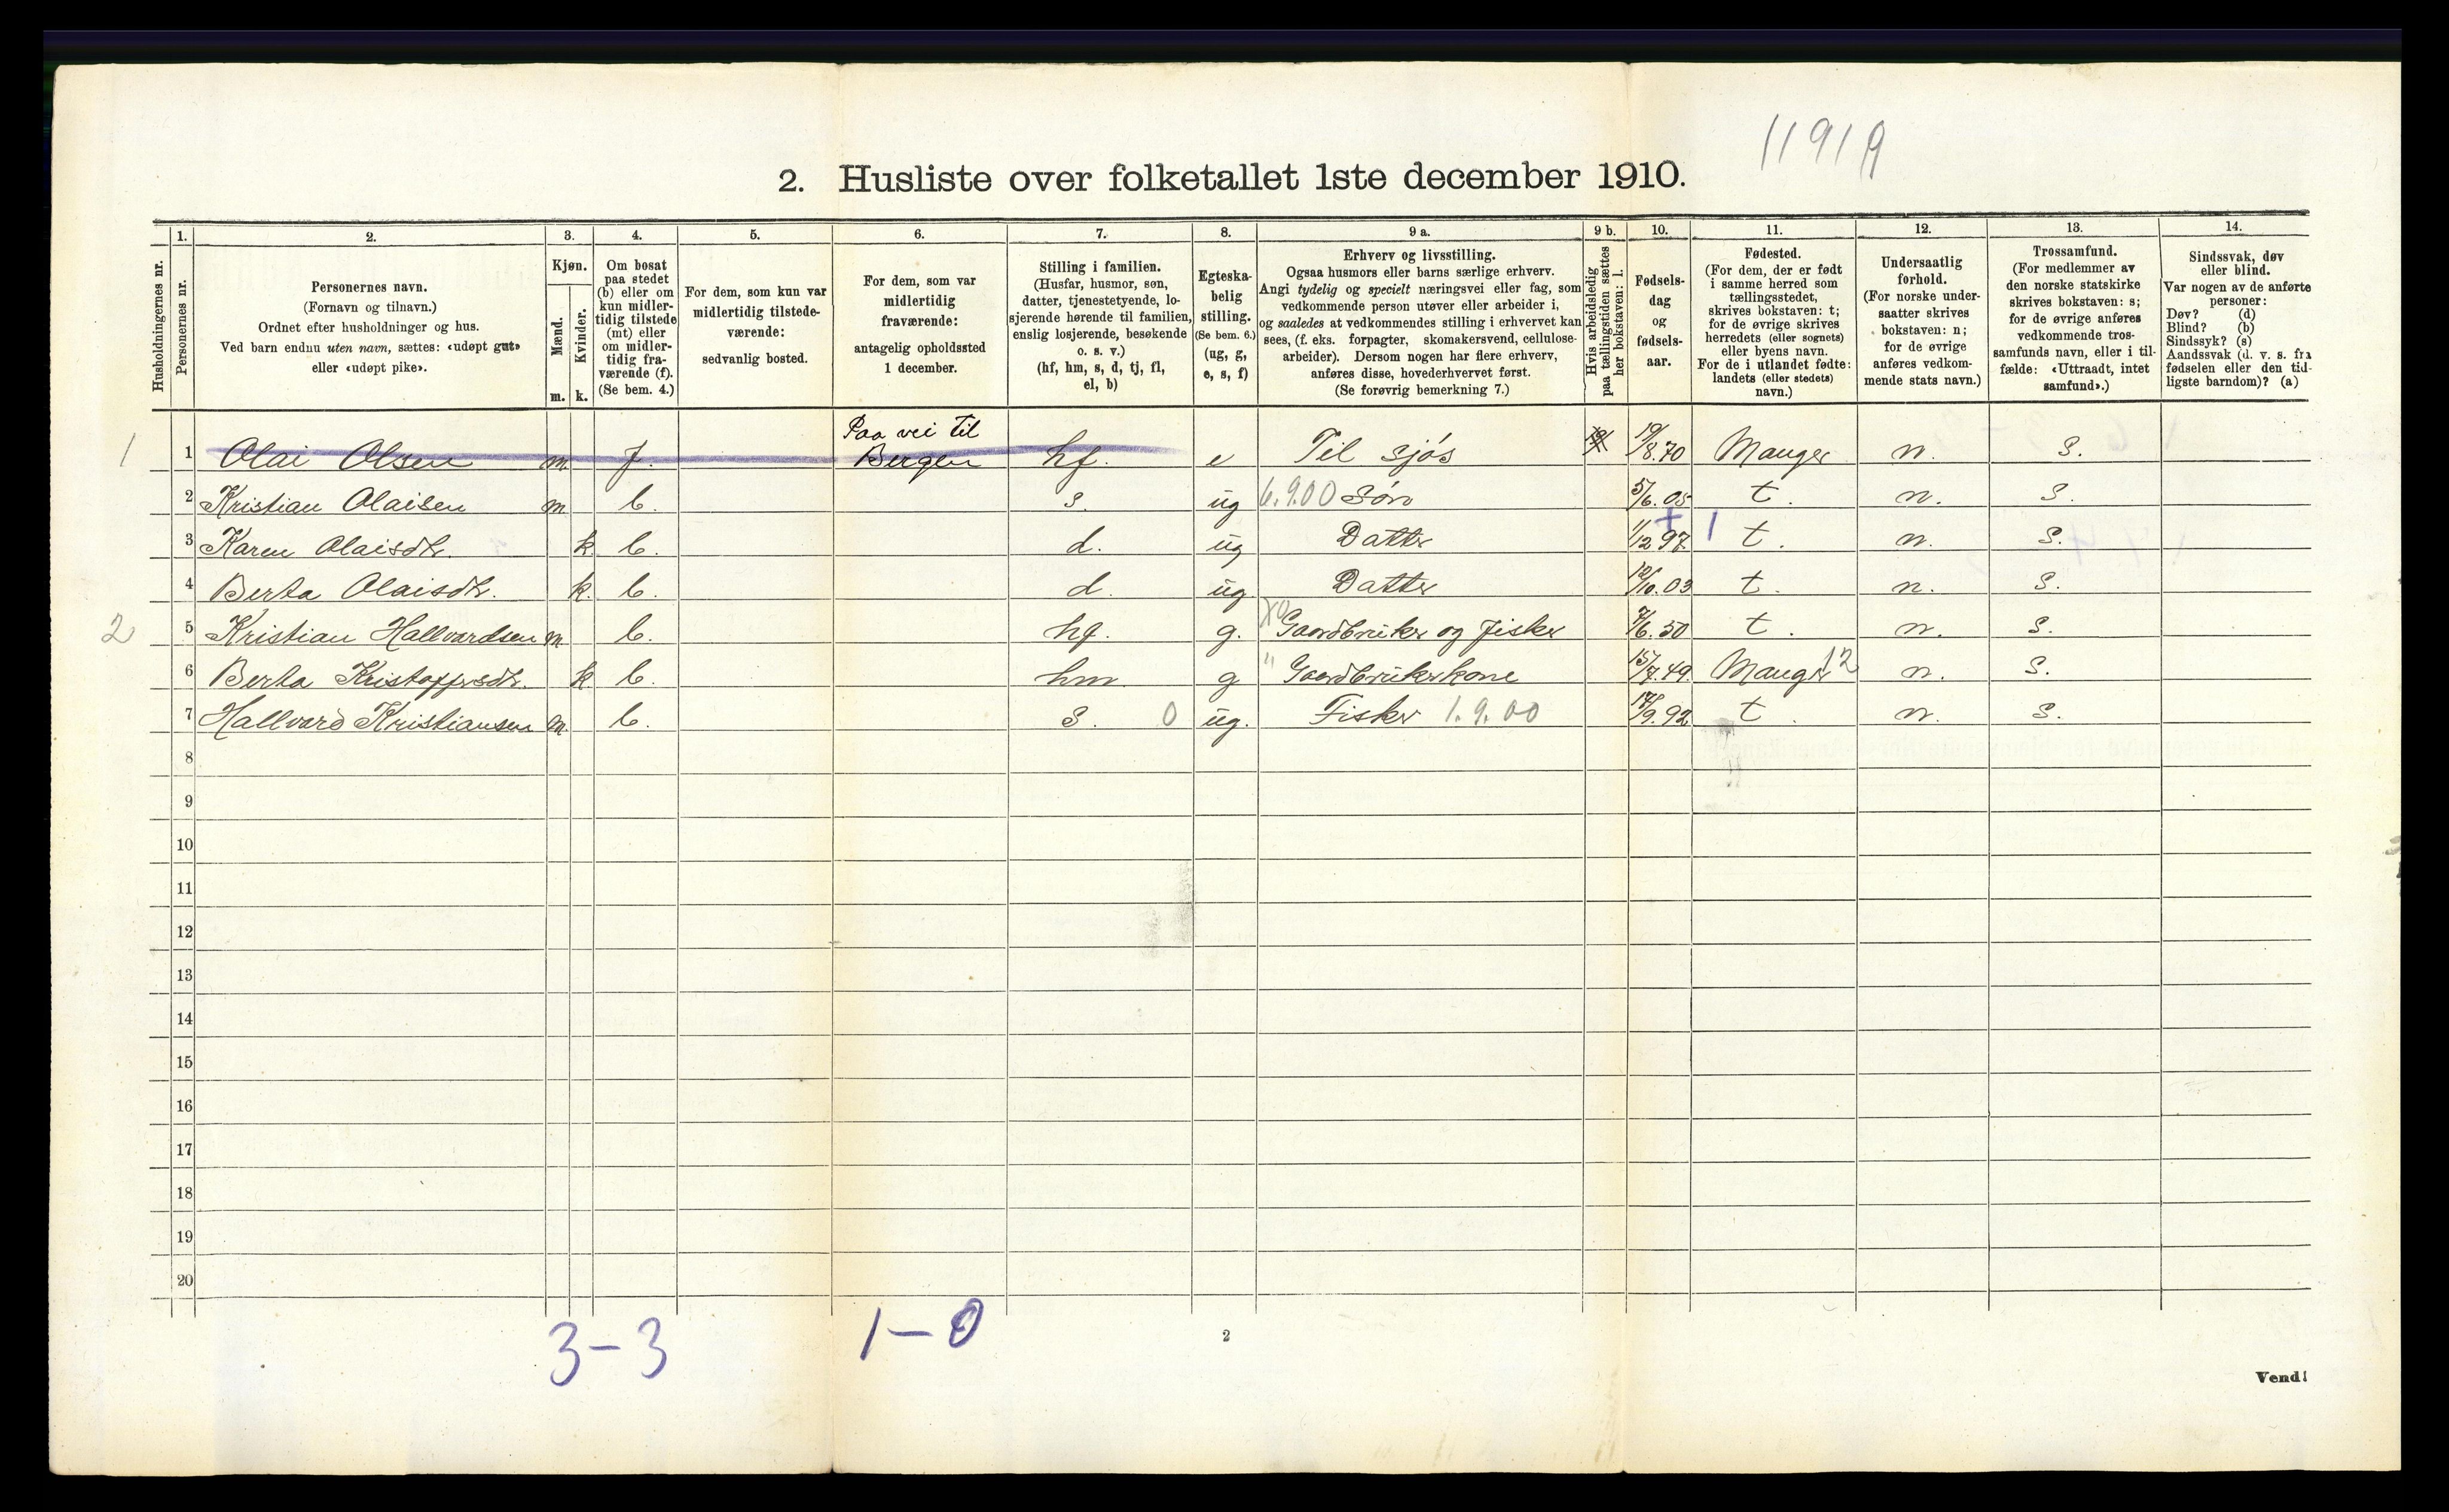 11919
2. Husliste over folketallet 1ste december 1910.
Husholdningernes nr.
1.
Personernes nr.
2.
Personernes navn.
(Fornavn og tilnavn.)
Ordnet efter husholdninger og hus.
Ved barn endnu uten navn, sættes: «udøpt gut»
eller «udøpt pike».
3.
Kjøn.
Mænd.
Kvinder.
m. k.
4.
Om bosat
paa stedet
(b) eller om
kun midler-
tidig tilstede
(mt) eller
om midler-
tidig fra-
værende (f).
(Se bem. 4.)
5.
For dem, som kun var
midlertidig tilstede-
værende:
sedvanlig bosted.
6.
For dem, som var
midlertidig
fraværende:
antagelig opholdssted
1 december.
7.
Stilling i familien.
(Husfar, husmor, søn,
datter, tjenestetyende, lo-
sjerende hørende til familien,
enslig losjerende, besøkende
o. s. v.)
(hf, hm, s, d, tj, fl,
el, b)
8.
Egteska-
belig
stilling.
(Se bem. 6.)
(ug, g,
e, s, f)
9 a.
Erhverv og livsstilling.
Ogsaa husmors eller barns særlige erhverv.
Angi tydelig og specielt næringsvei eller fag, som
vedkommende person utøver eller arbeider i,
og saaledes at vedkommendes stilling i erhvervet kan
sees, (f. eks. forpagter, skomakersvend, cellulose-
arbeider). Dersom nogen har flere erhverv,
anføres disse, hovederhvervet først.
(Se forøvrig bemerkning 7.)
9 b.
Hvis arbeidsledig
paa tællingstiden sættes
her bokstaven: l.
10.
Fødsels-
dag
og
fødsels-
aar.
11.
Fødested.
(For dem, der er født
i samme herred som
tællingsstedet,
skrives bokstaven: t;
for de øvrige skrives
herredets (eller sognets)
eller byens navn.
For de i utlandet fødte:
landets (eller stedets)
navn.)
12.
Undersaatlig
forhold.
(For norske under-
saatter skrives
bokstaven: n;
for de øvrige
anføres vedkom-
mende stats navn.)
13.
Trossamfund.
(For medlemmer av
den norske statskirke
skrives bokstaven: s;
for de øvrige anføres
vedkommende tros-
samfunds navn, eller i til-
fælde: «Uttraadt, intet
samfund».)
14.
Sindssvak, døv
eller blind.
Var nogen av de anførte
personer:
Døv? (d)
Blind? (b)
Sindssyk? (s)
Aandssvak (d. v. s. fra
fødselen eller den tid-
ligste barndom)? (a)
Paa vei til
1 1 Olai Olsen m. f. Bergen hf. e Til sjós 19/8.70 Manger n. S.
2 Kristian Olaisen m b. s. ug 6.9.00 Søn 5/6.05 t. n. S.
3 Karen Olaisdtr. k b. d. ug Datter 1/12 97 1 t. n. S.
4 Berta Olaisdtr. k. b. d. ug Datter 12/10.03 t. n. S.
2 5 Kristian Hallvardsen m b. hf. g. Gaardbruker og fisker 7/6.50 t. n. S.
6 Berta Kristoffersdtr. k b. hm g " Gaardbrukerkone 15/7.49 Manger 12 n. S.
7 Hallvard Kristiansen m. b. s. 0 ug. Fisker 1.9.00 17/9.92 t. n. S.
8
9
10
11
12
13
14
15
16
17
18
19
20
3-3 1-0
2
Vend!